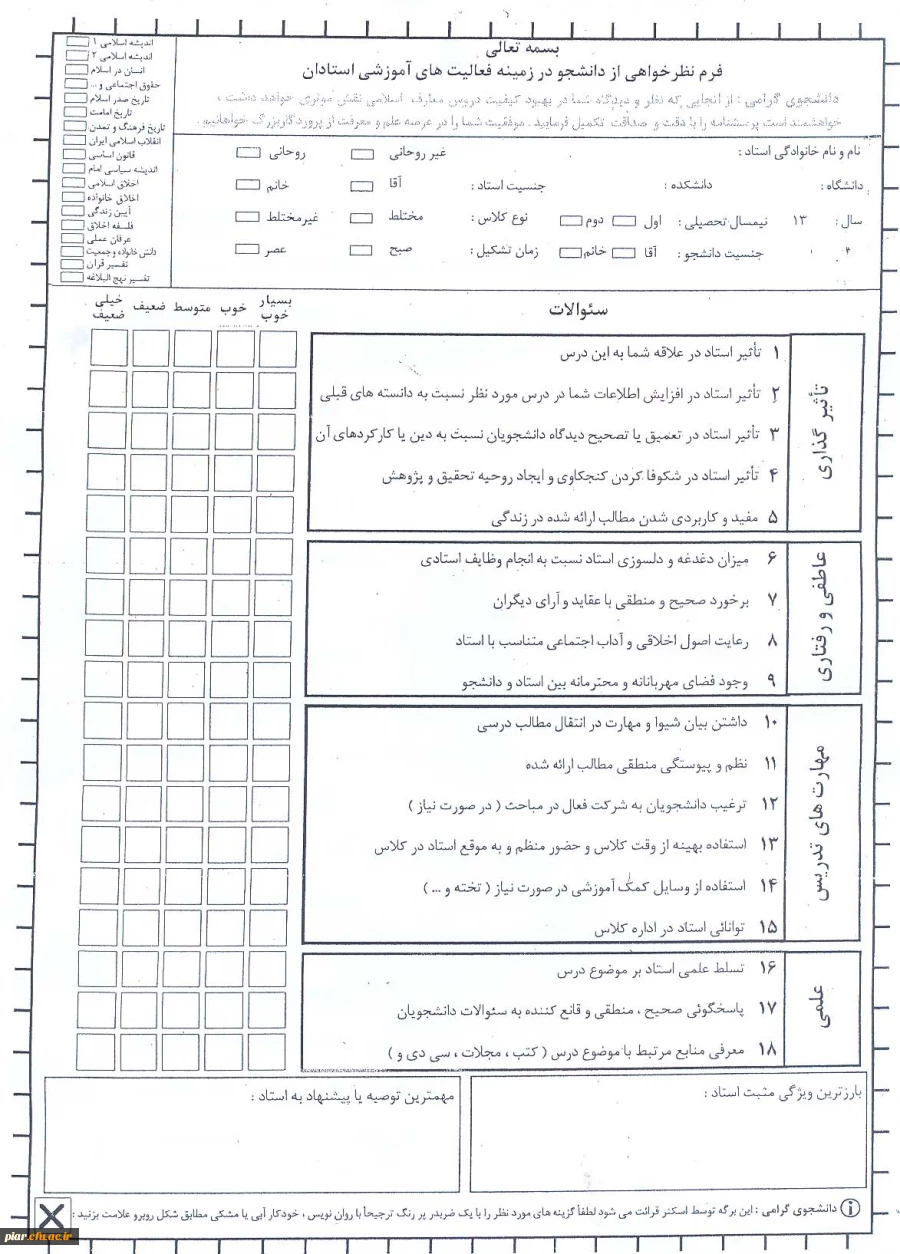 بسمه تعالی
فرم نظرخواهی از دانشجو در زمینه فعالیت های آموزشی استادان
دانشجوی گرامی : از آنجایی که نظر و دیدگاه شما در بهبود کیفیت دروس معارف اسلامی نقش موثری خواهد داشت ،
خواهشمند است پرسشنامه را با دقت و صداقت تکمیل فرمایید . موفقیت شما را در عرصه علم و معرفت از پروردگار بزرگ خواهانیم .
نام و نام خانوادگی استاد : غیر روحانی روحانی
دانشگاه : دانشکده : جنسیت استاد : آقا خانم
سال : ۱۳ نیمسال تحصیلی : اول دوم نوع کلاس : مختلط غیرمختلط
جنسیت دانشجو : آقا خانم زمان تشکیل : صبح عصر
اندیشه اسلامی ۱
اندیشه اسلامی ۲
انسان در اسلام
حقوق اجتماعی و ...
تاریخ صدر اسلام
تاریخ امامت
تاریخ فرهنگ و تمدن
انقلاب اسلامی ایران
قانون اساسی
اندیشه سیاسی امام
اخلاق اسلامی
اخلاق خانواده
آیین زندگی
فلسفه اخلاق
عرفان عملی
دانش خانواده و جمعیت
تفسیر قرآن
تفسیر نهج البلاغه
سئوالات
بسیار خوب
خوب
متوسط
ضعیف
خیلی ضعیف
تأثیر گذاری
۱ تأثیر استاد در علاقه شما به این درس
۲ تأثیر استاد در افزایش اطلاعات شما در درس مورد نظر نسبت به دانسته های قبلی
۳ تأثیر استاد در تعمیق یا تصحیح دیدگاه دانشجویان نسبت به دین یا کارکردهای آن
۴ تأثیر استاد در شکوفا کردن کنجکاوی و ایجاد روحیه تحقیق و پژوهش
۵ مفید و کاربردی شدن مطالب ارائه شده در زندگی
عاطفی و رفتاری
۶ میزان دغدغه و دلسوزی استاد نسبت به انجام وظایف استادی
۷ برخورد صحیح و منطقی با عقاید و آرای دیگران
۸ رعایت اصول اخلاقی و آداب اجتماعی متناسب با استاد
۹ وجود فضای مهربانانه و محترمانه بین استاد و دانشجو
مهارت های تدریس
۱۰ داشتن بیان شیوا و مهارت در انتقال مطالب درسی
۱۱ نظم و پیوستگی منطقی مطالب ارائه شده
۱۲ ترغیب دانشجویان به شرکت فعال در مباحث ( در صورت نیاز )
۱۳ استفاده بهینه از وقت کلاس و حضور منظم و به موقع استاد در کلاس
۱۴ استفاده از وسایل کمک آموزشی در صورت نیاز ( تخته و ... )
۱۵ توانائی استاد در اداره کلاس
علمی
۱۶ تسلط علمی استاد بر موضوع درس
۱۷ پاسخگوئی صحیح ، منطقی و قانع کننده به سئوالات دانشجویان
۱۸ معرفی منابع مرتبط با موضوع درس ( کتب ، مجلات ، سی دی و )
بارزترین ویژگی مثبت استاد :
مهمترین توصیه یا پیشنهاد به استاد :
دانشجوی گرامی : این برگه توسط اسکنر قرائت می شود لطفاً گزینه های مورد نظر را با یک ضربدر پر رنگ ترجیحاً با روان نویس ، خودکار آبی یا مشکی مطابق شکل روبرو علامت بزنید :
piar.cfu.ac.ir